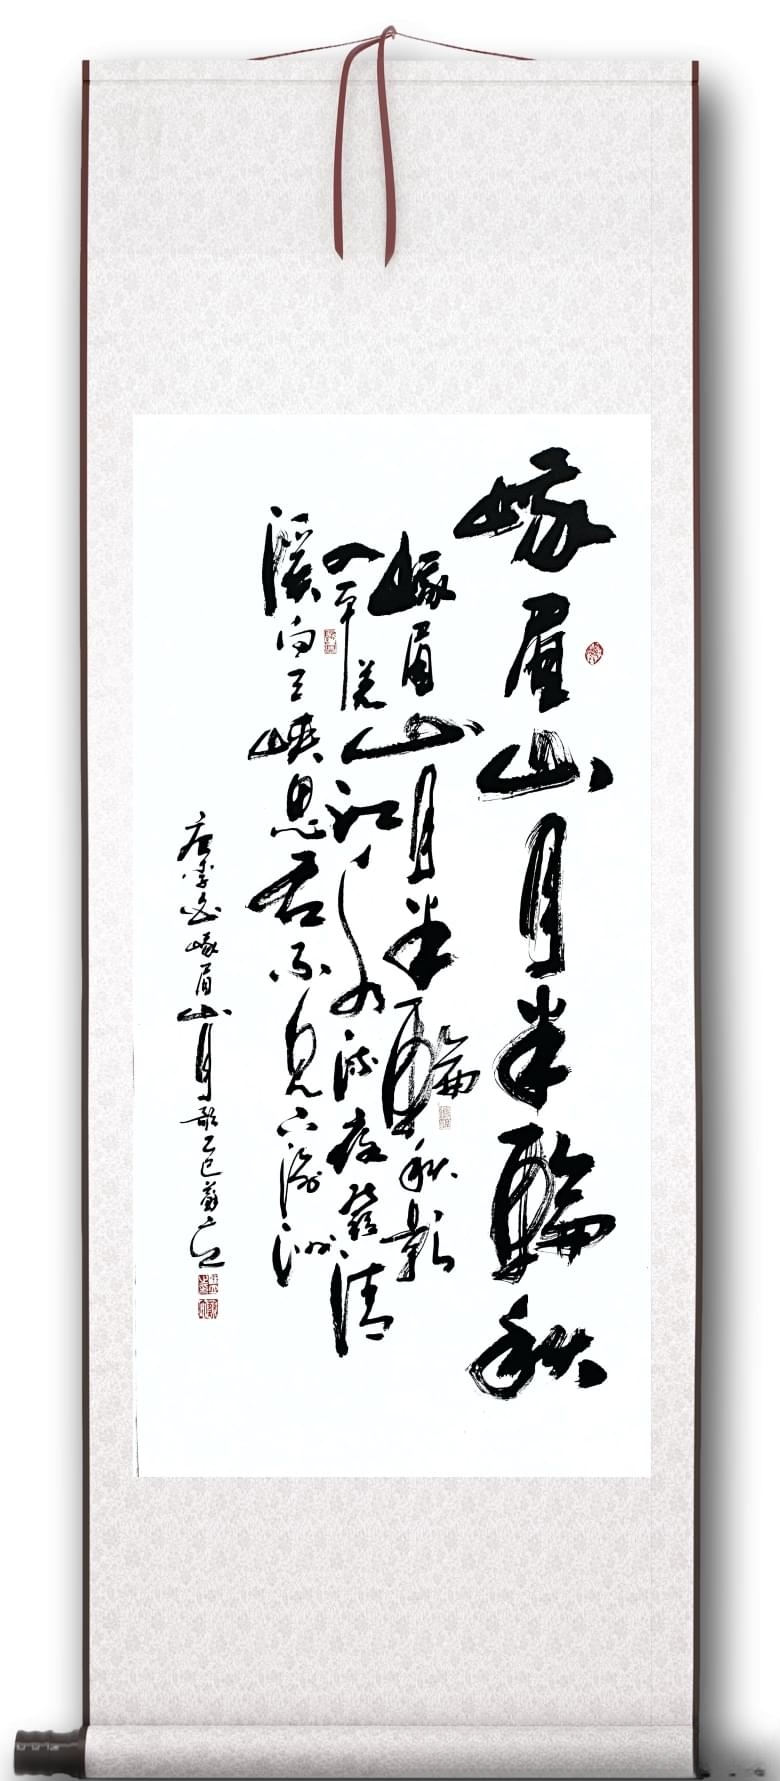 峨眉山月半輪秋
峨眉山月半輪秋影
入平羌江水流夜發清
溪向三峽思君不見下渝州
唐李白峨眉山月歌乙巳